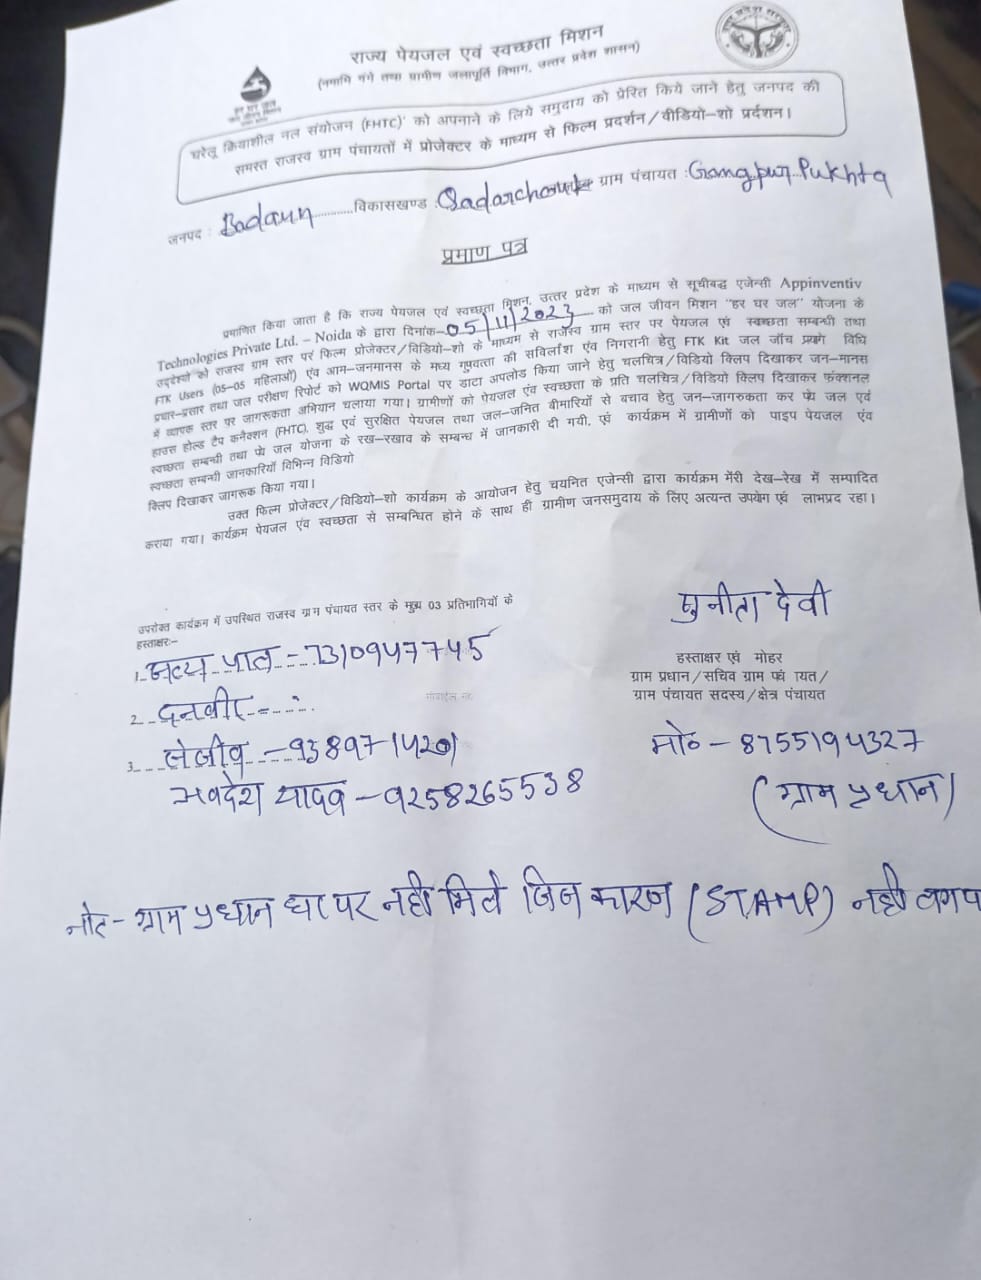 राज्य पेयजल एवं स्वच्छता मिशन
(नमामि गंगे तथा ग्रामीण जलापूर्ति विभाग, उत्तर प्रदेश शासन)
घरेलू क्रियाशील नल संयोजन (FHTC)' को अपनाने के लिये समुदाय को प्रेरित किये जाने हेतु जनपद की
समस्त राजस्व ग्राम पंचायतों में प्रोजेक्टर के माध्यम से फिल्म प्रदर्शन/वीडियो–शो प्रर्दशन।
जनपद : Badaun विकासखण्ड : Qadarchowk ग्राम पंचायत : Gangpur Pukhta
प्रमाण पत्र
प्रमाणित किया जाता है कि राज्य पेयजल एवं स्वच्छता मिशन, उत्तर प्रदेश के माध्यम से सूचीबद्व एजेन्सी Appinventiv
Technologies Private Ltd. – Noida के द्वारा दिनांक–05/11/2023 को जल जीवन मिशन "हर घर जल" योजना के
उद्देश्यों को राजस्व ग्राम स्तर पर फिल्म प्रोजेक्टर/विडियो–शो के माध्यम से राजस्व ग्राम स्तर पर पेयजल एवं स्वच्छता सम्बन्धी तथा
FTK Users (05–05 महिलाओं) एंव आम–जनमानस के मध्य गुणवत्ता की सर्विलांश एंव निगरानी हेतु FTK Kit जल जाँच प्रयोग विधि
प्रचार–प्रसार तथा जल परीक्षण रिपोर्ट को WQMIS Portal पर डाटा अपलोड किया जाने हेतु चलचित्र/विडियो क्लिप दिखाकर जन–मानस
में व्यापक स्तर पर जागरूकता अभियान चलाया गया। ग्रामीणों को पेयजल एंव स्वच्छता के प्रति चलचित्र/विडियो क्लिप दिखाकर फंक्शनल
हाउस होल्ड टैप कनैक्शन (FHTC), शुद्व एवं सुरक्षित पेयजल तथा जल–जनित बीमारियों से बचाव हेतु जन–जागरुकता कर पेय जल एवं
स्वच्छता सम्बन्धी तथा पेय जल योजना के रख–रखाव के सम्बन्ध में जानकारी दी गयी, एवं कार्यक्रम में ग्रामीणों को पाइप पेयजल एंव
स्वच्छता सम्बन्धी जानकारियाँ विभिन्न विडियो
क्लिप दिखाकर जागरूक किया गया।
उक्त फिल्म प्रोजेक्टर/विडियो–शो कार्यक्रम के आयोजन हेतु चयनित एजेन्सी द्वारा कार्यक्रम मेंरी देख–रेख में सम्पादित
कराया गया। कार्यक्रम पेयजल एंव स्वच्छता से सम्बन्धित होने के साथ ही ग्रामीण जनसमुदाय के लिए अत्यन्त उपयोग एवं लाभप्रद रहा।
उपरोक्त कार्यक्रम में उपस्थित राजस्व ग्राम पंचायत स्तर के मुख्य 03 प्रतिभागियों के
हस्ताक्षरः–
1. सत्य पाल – 7310947745
2. दनवीर –
3. – 9389714201
अवदेश यादव – 9258265538
सुनीता देवी
हस्ताक्षर एवं मोहर
ग्राम प्रधान/सचिव ग्राम पंचायत/
ग्राम पंचायत सदस्य/क्षेत्र पंचायत
मो० – 8755194327
(ग्राम प्रधान)
नोट – ग्राम प्रधान घर पर नही मिले जिस कारण (STAMP) नही